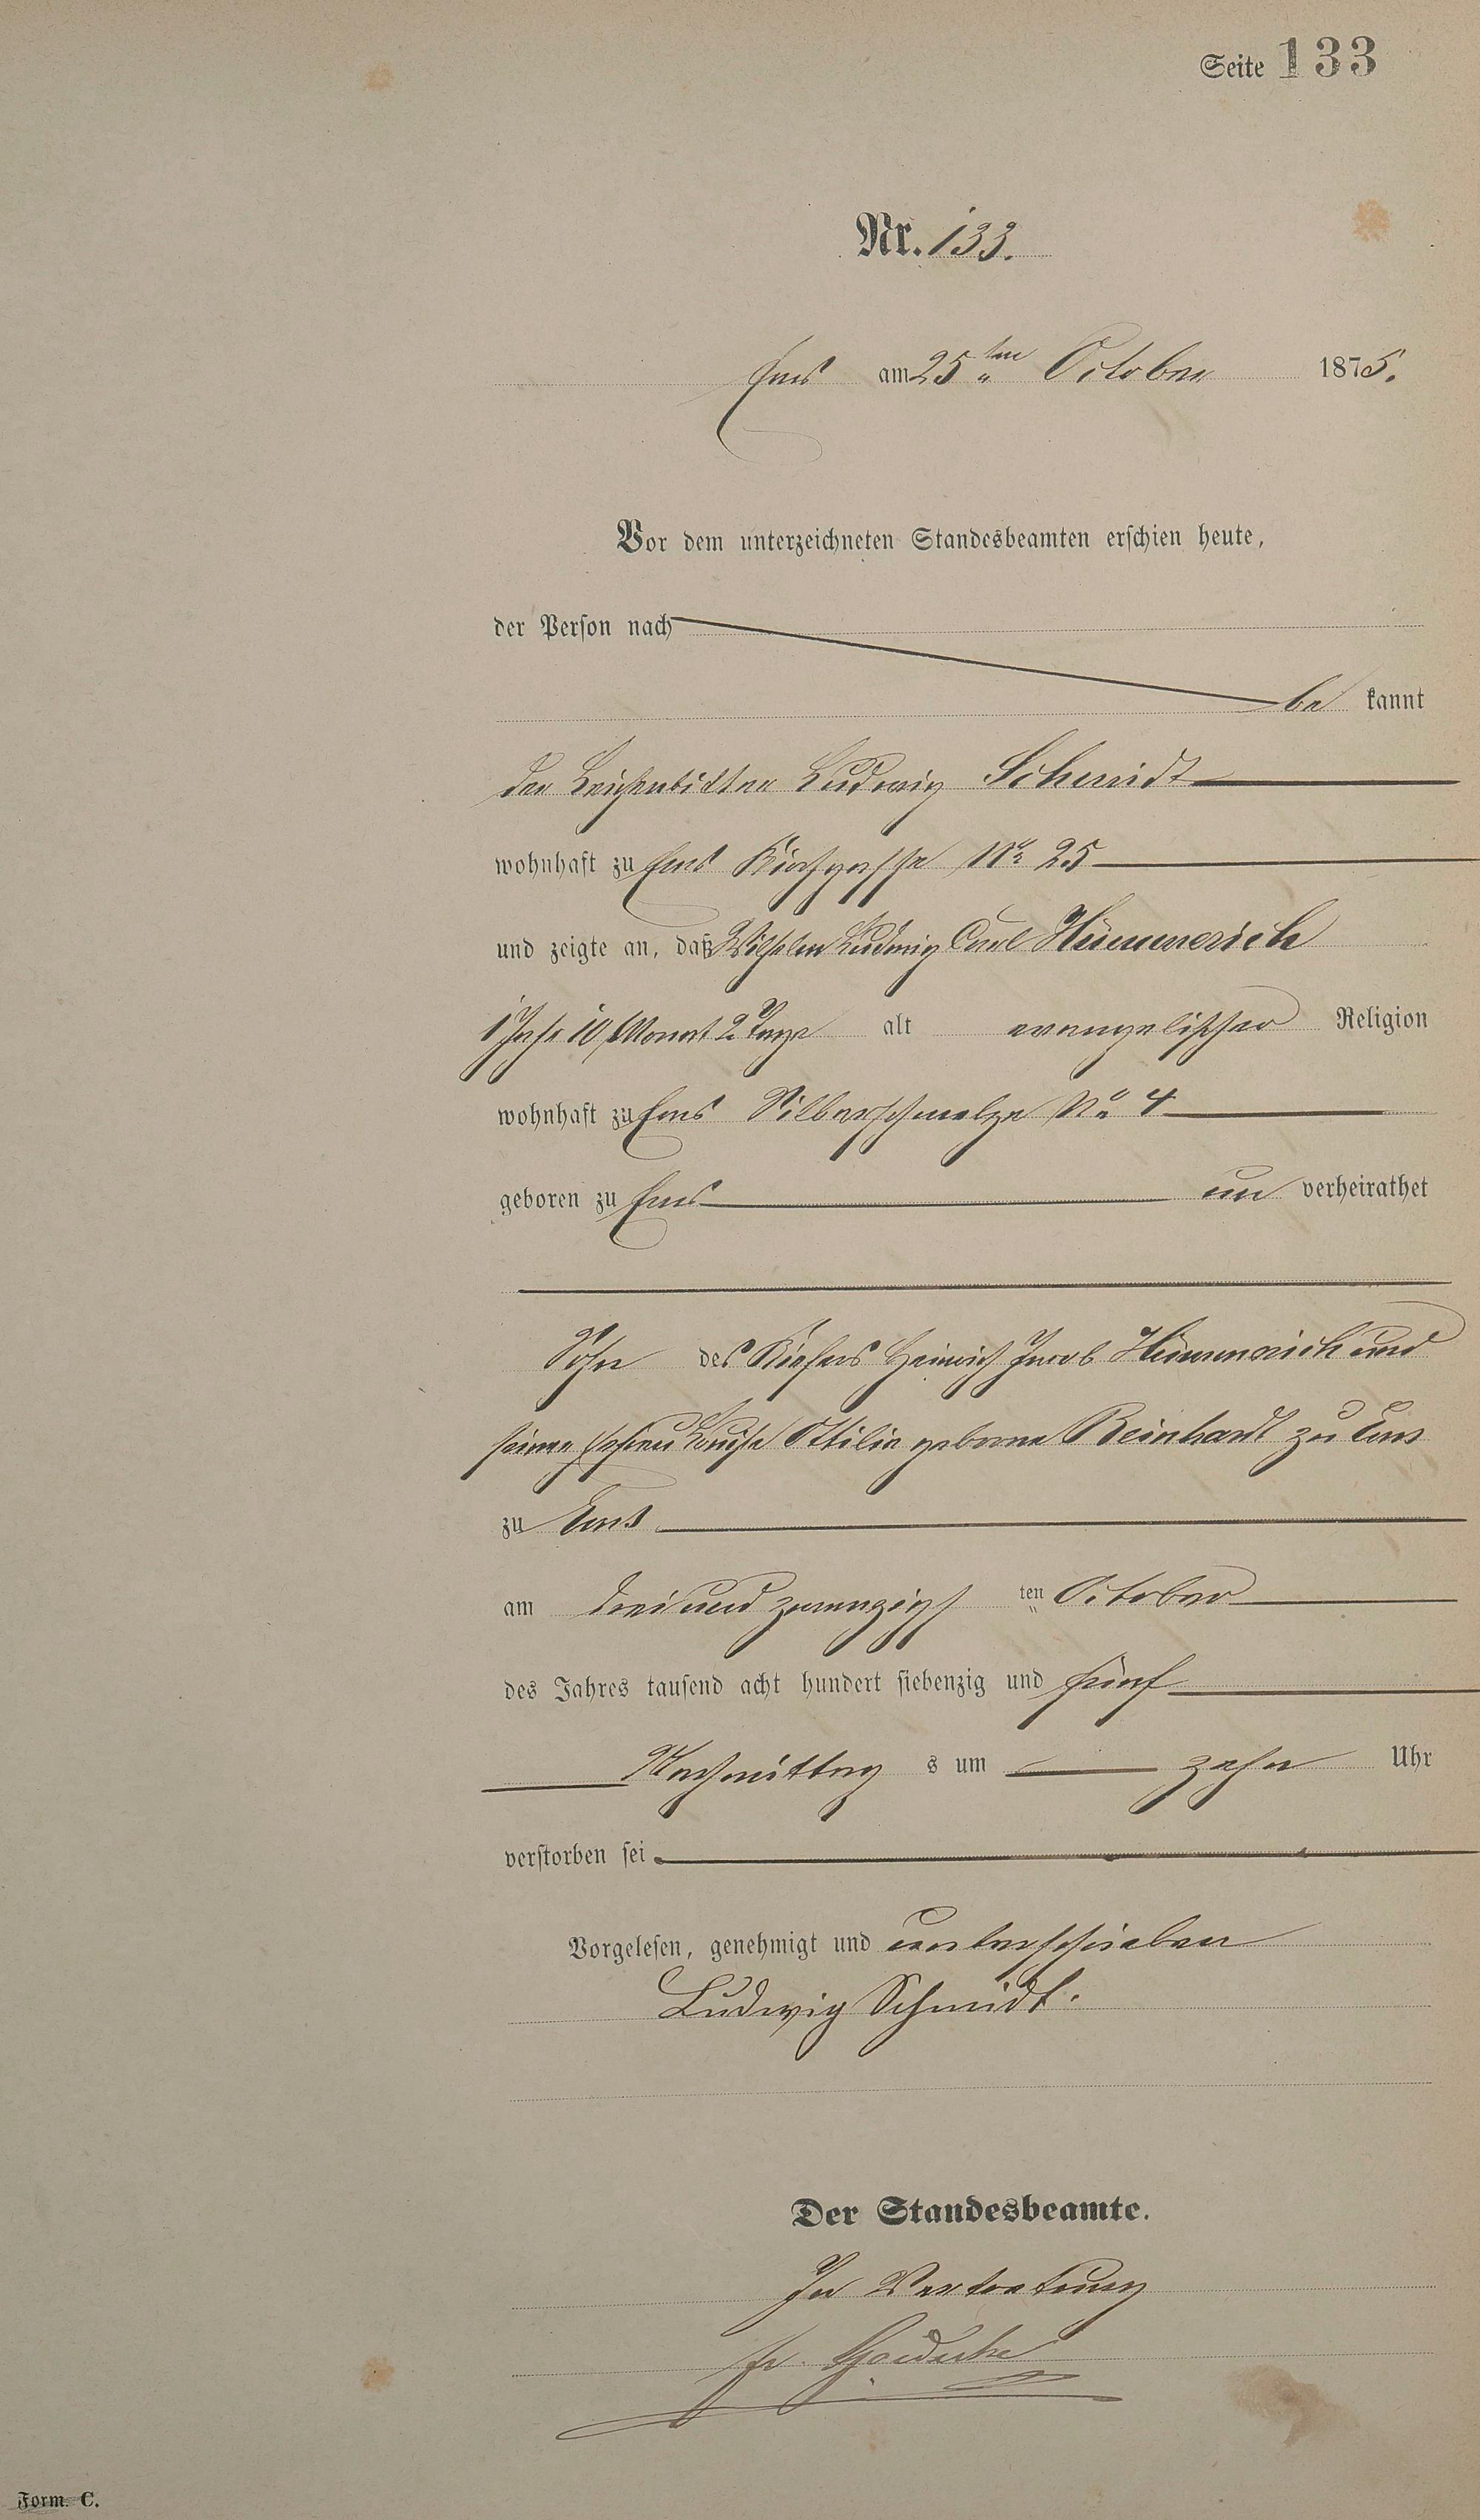 Seite 133
Nr. 133.
Ems am 25ten October 1875.
Vor dem unterzeichneten Standesbeamten erschien heute,
der Person nach
be kannt
der Leichenbitter Ludwig Schmidt
wohnhaft zu Ems Kirchgasse No 25
und zeigte an, daß Wilhelm Ludwig Carl Hümmerich
1 Jahr 10 Monat 2 Tage alt evangelischer Religion
wohnhaft zu Ems Silberschmelze No 4
geboren zu Ems un verheirathet
Sohn des Küfers Heinrich Jacob Hümmerich und
seiner Ehefrau Louise Ottilie geborne Reinhardt zu Ems
zu Ems
am drei und zwanzigsten October
des Jahres tausend acht hundert siebenzig und fünf
Nachmittag s um zehn Uhr
verstorben sei
Vorgelesen, genehmigt und unterschrieben
Ludwig Schmidt.
Der Standesbeamte.
In Vertretung
Form. C.